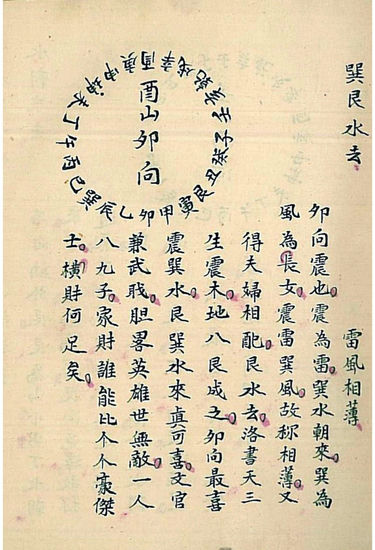 巽艮水去
雷風相薄
卯向震也。震為雷。巽水朝來。巽為
風為長女。震雷巽風。故称相薄。又
得夫婦相配。艮水去。洛書天三
生震木。地八艮成之。卯向最喜
震巽水。艮巽水來真可喜。文官
兼武職胆畧英雄世無敵。一人
八九子。家財誰能比。个个豪傑
士。橫財何足矣。
酉山卯向
壬子癸丑艮寅甲卯乙辰巽巳丙午丁未坤申庚酉辛戌乾亥